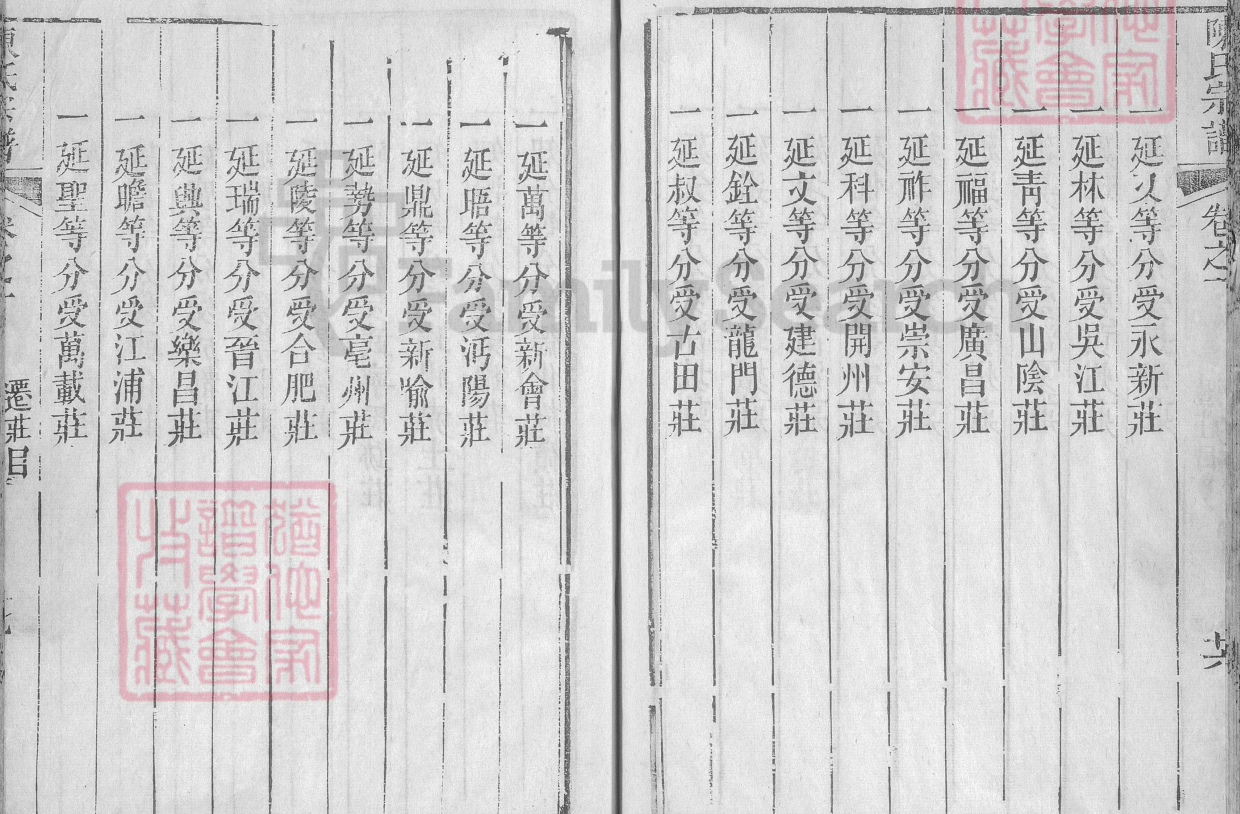 陳氏宗譜
卷之
廿六
一延等分受永新莊
一延林等分受吳江莊
一延靑等分受山陰莊
一延福等分受廣昌莊
一延祚等分受崇安莊
一延科等分受開州莊
一延文等分受建德莊
一延銓等分受龍門莊
一延叔等分受古田莊
一延萬等分受新會莊
一延晤等分受沔陽莊
一延鼎等分受新喻莊
一延勢等分受亳州莊
一延陵等分受合肥莊
一延瑞等分受晉江莊
一延興等分受樂昌莊
一延瞻等分受江浦莊
一延聖等分受萬載莊
遷莊
FamilySearch